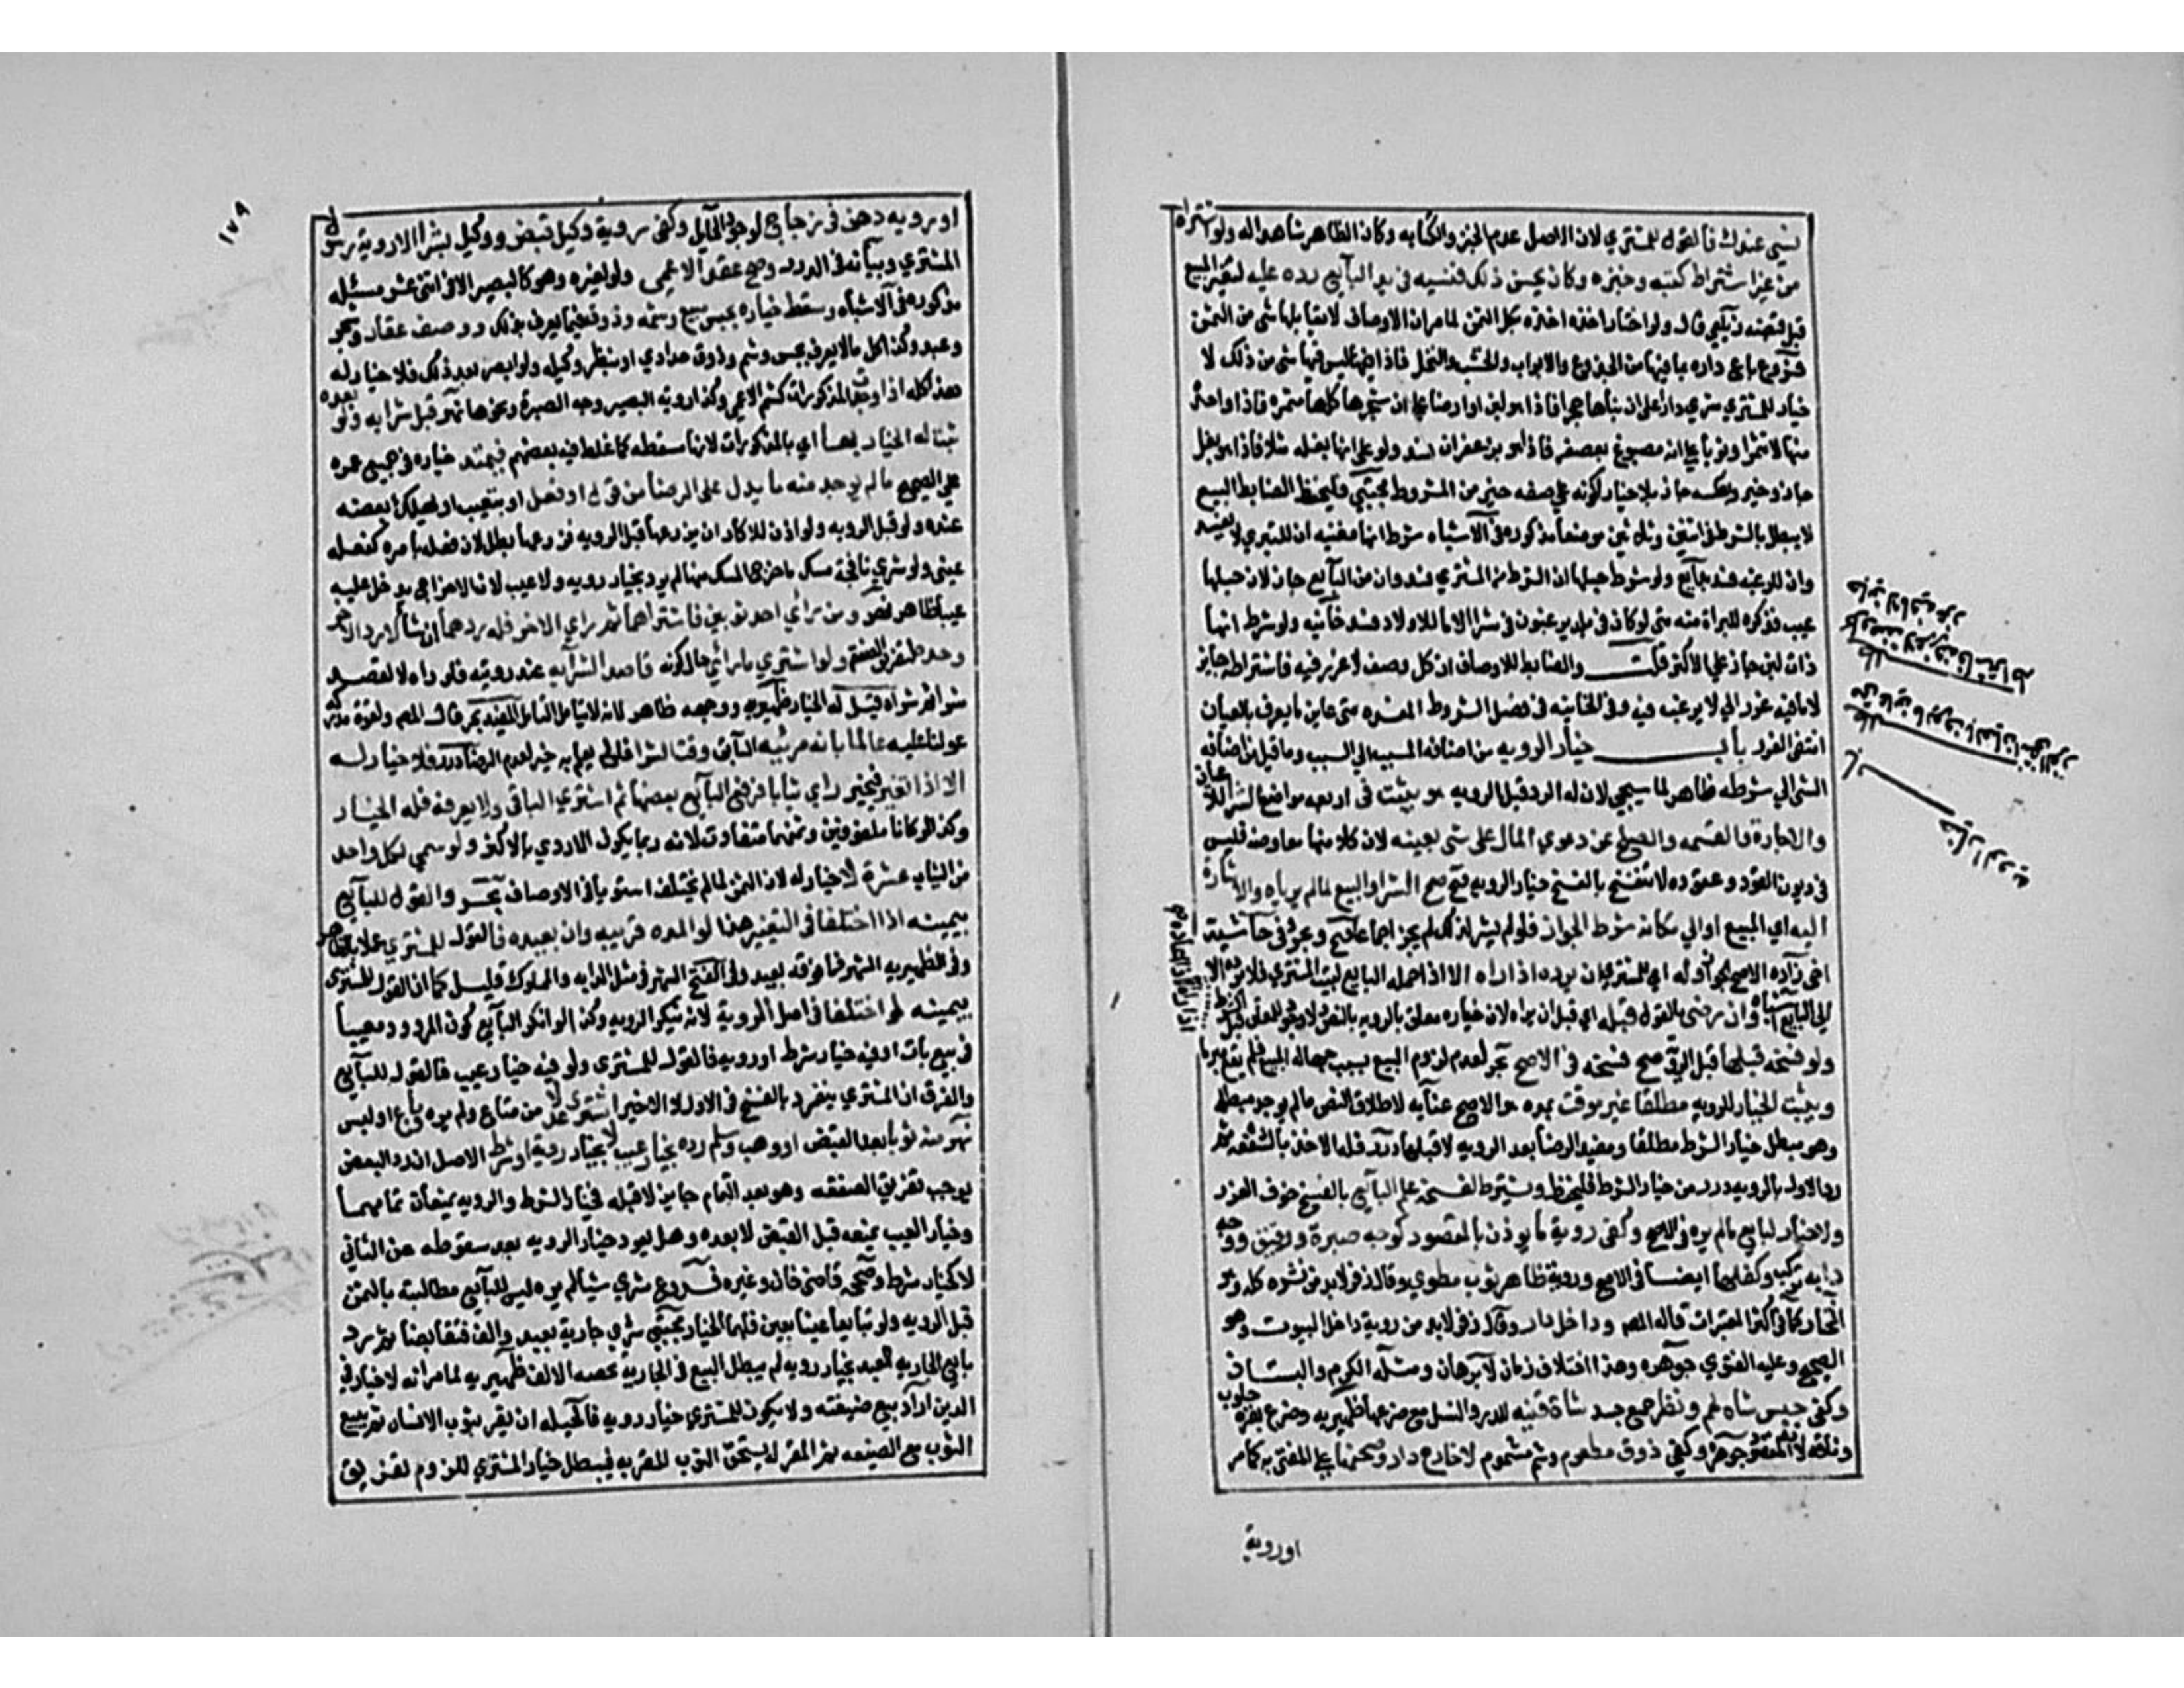 نسي عندك فالقول للمشتري لان الاصل عدم الخبز والكتابه وكان الظاهر شاهدا له ولو اشتراه
من غير اشتراط كتبه وخبزه وكان يحسن ذلك فنسيه في يد البايع رده عليه لتغير المبيع
قبل قبضه زيلعي قال ولو اختار اخذه اخذه بكل الثمن لما مر ان الاوصاف لا يقابلها شي من الثمن
فروع باع داره بما فيها من الجذوع والابواب والخشب والنخل فاذا ليس فيها شي من ذلك لا
خيار للمشتري شري دارا على ان بناها اجر فاذا هو لبن او ارضا على ان شجرها كلها مثمره فاذا واحدة
منها لا تثمر او ثوبا على انه مصبوغ بعصفر فاذا هو بزعفران فسد ولو على انها بغله مثلا فاذا هو بغل
جاز وخير وبعكسه جاز بلا خيار لكونه على صفه خير من المشروط مجتبى فليحفظ الضابط البيع
لا يبطل بالشرط في اثنين وثلاثين موضعا مذكوره في الاشباه شرط انها مغنيه ان للتبري لا يفسد
وان للرغبه فسد بدايع ولو شرط حبلها ان الشرط من المشتري فسد وان من البايع جاز لان حبلها
عيب فذكره للبراة منه حتى لو كان في بلد يرغبون في شرا الاما للاولاد فسد خانيه ولو شرط انها
ذات لبن جاز على الاكثر قلت والضابط للاوصاف ان كل وصف لا غرر فيه فاشتراطه جايز
لا ما فيه غرر الا ان لا يرغب فيه وفي الخانيه في فصل الشروط المفسده متى عاين ما يعرف بالعيان
انتفى الغرر باب خيار الرويه من اضافه المسبب الى السبب وما قيل من اضافه
الشي الى شرطه ظاهر لما سيجي لان له الرد قبل الرويه هو يثبت في اربعه مواضع الشرا للاعيان
والاجارة والقسمه والصلح عن دعوي المال على شي بعينه لان كلا منها معاوضه فليس
في ديون ونقود وعقود لا تنفسخ بالفسخ خيار الرويه فتح صح الشرا والبيع لما لم يرياه والاشارة
اليه اي المبيع او الى مكانه شرط الجواز فلو لم يشر لذلك لم يجز اجماعا فتح وبحر وفي حاشية
اخي زاده الاصح الجواز وله اي للمشتري ان يرده اذا راه الا اذا حمله البايع لبيت المشتري فلا يرده الا
الى البايع اشباه وان رضي بالقول قبله اي قبل ان يراه لان خياره معلق بالرويه بالنص ولا وجود للمعلق قبل الشرط
ولو فسخه قبلها قبل الرؤية صح فسخه في الاصح بحر لعدم لزوم البيع بسبب جهاله المبيع فلم يقع مبرما
ويثبت الخيار للرويه مطلقا غير موقت بمده هو الاصح عنايه لاطلاق النص ما لم يوجد مبطله
وهو مبطل خيار الشرط مطلقا ومفيد الرضا بعد الرويه لا قبلها درر فله الاخذ بالشفعه ثم
رد الاولى بالرويه درر من خيار الشرط فليحفظ ويشترط لفسخه علم البايع بالفسخ خوف الغرر
ولا خيار لبايع ما لم يره في الاصح وكفى روية ما يوذن بالمقصود كوجه صبرة ورقيق ووجه
دابه تركب وكفلها ايضا في الاصح وروية ظاهر ثوب مطوي وقال زفر لا بد من نشره كله وهو
المختار كما في اكثر المعتبرات قاله المص وداخل دار وقال زفر لا بد من روية داخل البيوت وهو
الصحيح وعليه الفتوي جوهره وهذا اختلاف زمان لا برهان ومثله الكرم والبستان
وكفى جس شاه لحم ونظر جميع جسد شاة قنيه للدر والنسل مع ضرعها ظهيريه وضرع بقره حلوب
وناقه لانه المقصود جوهره وكفى ذوق مطعوم وشم مشموم لا خارج دار وصحنها على المفتى به كما مر
اوروية
كل وصف لا غرر فيه فاشتراطه جايز لا ما فيه غرر
مطلب
متى عاين ما يعرف بالعيان انتفى الغرر
مطلب
خيار الروية
باب
١٧٩
او رويه دهن في زجاج لوجود الحايل وكفى روية وكيل قبض ووكيل بشرا لا روية رسول
المشتري وبيانه في الدرر وصح عقد الاعمى ولو لغيره وهو كالبصير الا في اثني عشر مسئله
مذكوره في الاشباه وسقط خياره بجس مبيع وشمه وذوقه فيما يعرف بذلك ووصف عقار وشجر
وعبد وكذا كل ما لا يعرف بجس وشم وذوق حدادي او بنظر وكيله ولو ابصر بعد ذلك فلا خيار له
هذا كله اذا وجدت المذكورات كشم الاعمى وكذا رويه البصير وجه الصبرة ونحوها نهر قبل شرايه ولو بعده
ثبت له الخيار بها اي بالمذكورات لا انها مسقطه كما غلط فيه بعضهم فيمتد خياره في جميع عمره
على الصحيح ما لم يوجد منه ما يدل على الرضا من قول او فعل او يتعيب او يهلك بعضه
عنده ولو قبل الرويه ولو اذن للاكار ان يزرعها قبل الرويه فزرعها بطل لان فعله بامره كفعله
عيني ولو شري نافجة مسك فاخرج المسك منها لم يرد بخيار رويه ولا عيب لان الاخراج يدخل عليه
عيبا ظاهرا نهر ومن راي احد ثوبين فاشتراهما ثم راي الاخر فله ردهما ان شا لا رد الاخر
وحده لتفريق الصفقة ولو اشتري ما راي حال كونه قاصدا لشرايه عند رويته فلو راه لا لقصد
شرا ثم شراه قيل له الخيار ظهيريه ووجهه ظاهر لانه لا يتامل التامل المفيد بحر قال المص ولقوة مدركه
عولنا عليه عالما بانه مرئيه السابق وقت الشرا فلو لم يعلم به خير لعدم الرضا درر فلا خيار له
الا اذا تغير فيخير راي ثيابا فرفع البايع بعضها ثم اشتري الباقي ولا يعرفه فله الخيار
وكذا لو كانا ملفوفين وثمنهما متفاوت لانه ربما يكون الاردي بالاكثر ولو سمي لكل واحد
من الثياب عشرة لا خيار له لان الثمن لما لم يختلف استويا في الاوصاف بحر والقول للبايع
بيمينه اذا اختلفا في التغير هذا لو المده قريبه وان بعيده فالقول للمشتري عملا بالظاهر
وفي الظهيريه الشهر فما فوقه بعيد وفي الفتح الشهر في مثل الدابه والمملوك قليل كما ان القول للمشتري
بيمينه لو اختلفا في اصل الروية لانه ينكر الرويه وكذا لو انكر البايع كون المردود مبيعا
في بيع بات او فيه خيار شرط او رويه فالقول للمشتري ولو فيه خيار عيب فالقول للبايع
والفرق ان المشتري ينفرد بالفسخ في الاول لا الاخير اشتري عدلا من متاع ولم يره وباع او لبس
نهر منه ثوبا بعد القبض او وهب وسلم رده بخيار عيب لا بخيار روية او شرط الاصل ان رد البعض
يوجب تفريق الصفقه وهو بعد التمام جايز لا قبله فخيار الشرط والرويه يمنعان تمامها
وخيار العيب يمنعه قبل القبض لا بعده وهل يعود خيار الرويه بعد سقوطه عن الثاني
لا كخيار شرط وصححه قاضي خان وغيره فروع شري شيا لم يره ليس للبايع مطالبته بالثمن
قبل الرويه ولو تبايعا عينا بعين فلهما الخيار مجتبى شري جارية بعبد والف فتقابضا ثم رد
بايع الجاريه العبد بخيار رويه لم يبطل البيع في الجاريه بحصه الالف ظهيريه لما مر انه لا خيار في
الدين اراد بيع ضيعته ولا يكون للمشتري خيار رويه فالحيله ان يقر بثوب لانسان ثم يبيع
الثوب مع الضيعه ثم المقر له يستحق الثوب المقر به فيبطل خيار المشتري للزوم تفريق